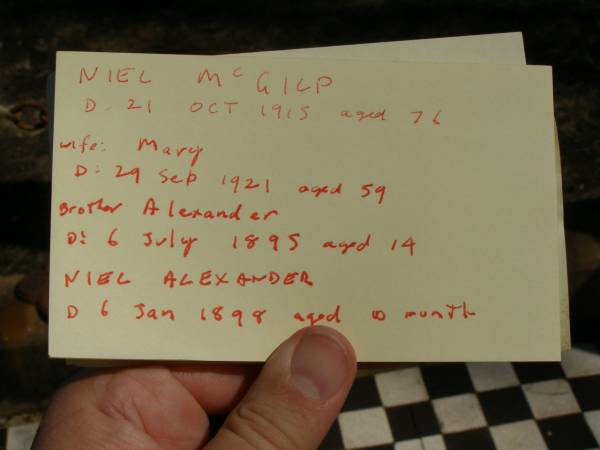 NIEL McGILP
D. 21 OCT 1915 aged 76
wife: Mary
D: 29 Sep 1921 aged 59
Brother Alexander
D: 6 July 1895 aged 14
NIEL ALEXANDER
D 6 Jan 1898 aged 10 month